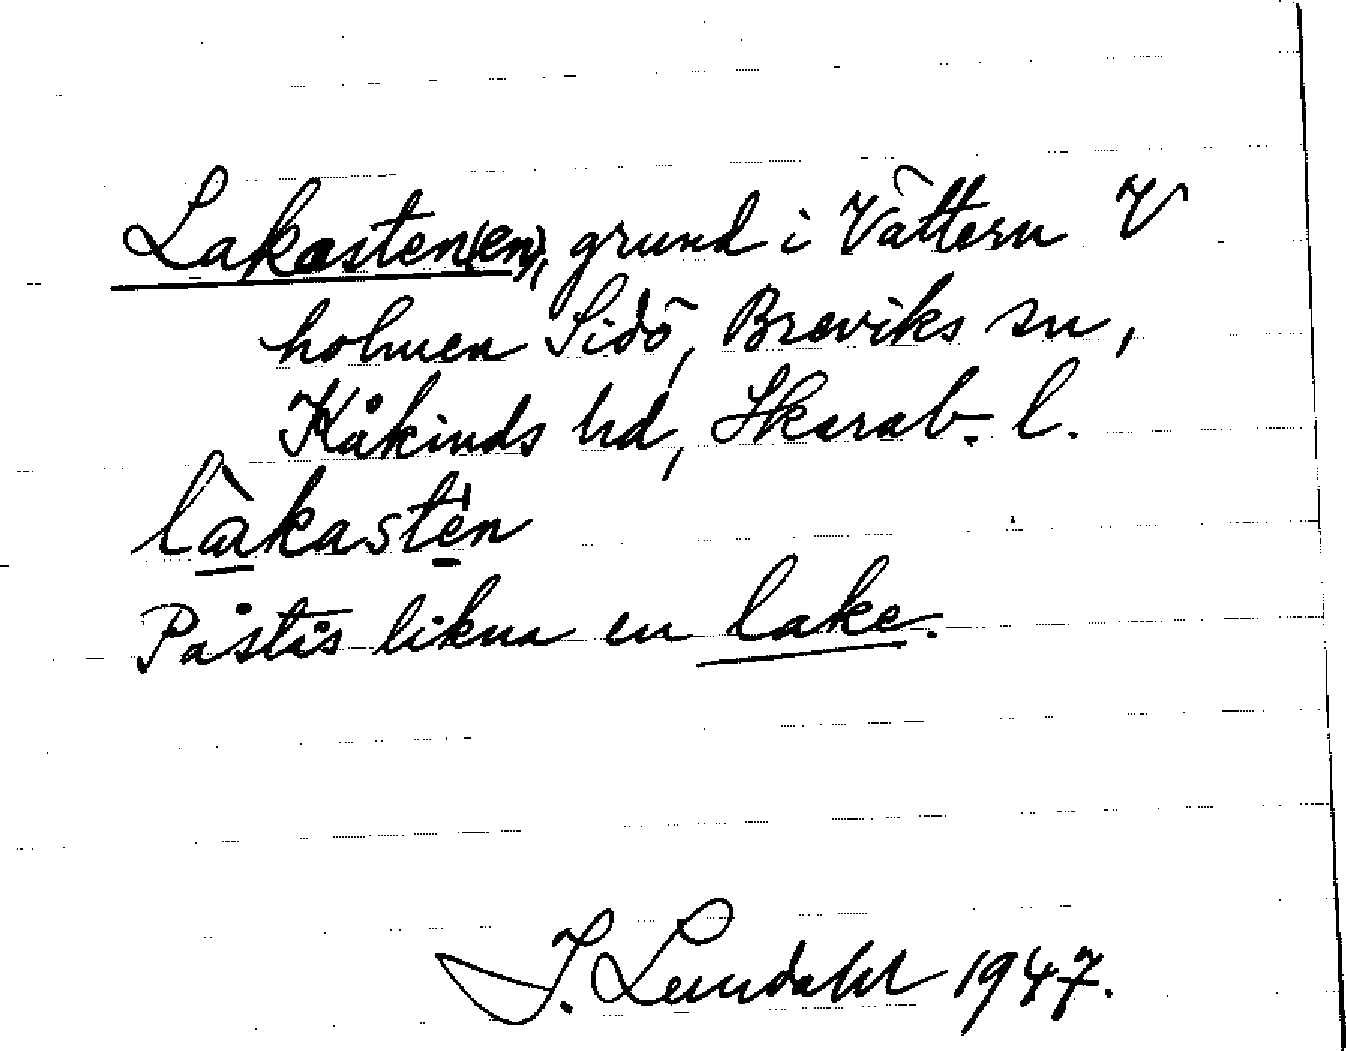 Lakasten(en), grund i Vättern V
holmen Sidö, Breviks sn,
Kåkinds hd, Skarab. l.
làkastén
Påstås likna en lake.
I. Lundahl 1947.